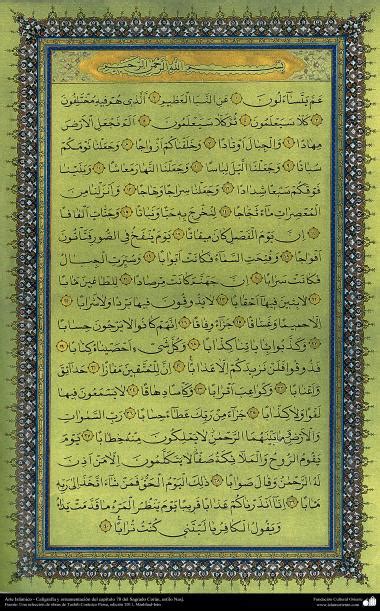 بسم الله الرحمن الرحيم
عم يتساءلون عن النبإ العظيم الذي هم فيه مختلفون
كلا سيعلمون ثم كلا سيعلمون الم نجعل الارض
مهادا والجبال اوتادا وخلقناكم ازواجا وجعلنا نومكم
سباتا وجعلنا الليل لباسا وجعلنا النهار معاشا وبنينا
فوقكم سبعا شدادا وجعلنا سراجا وهاجا وانزلنا من
المعصرات ماء ثجاجا لنخرج به حبا ونباتا وجنات الفافا
ان يوم الفصل كان ميقاتا يوم ينفخ في الصور فتأتون
افواجا وفتحت السماء فكانت ابوابا وسيرت الجبال
فكانت سرابا ان جهنم كانت مرصادا للطاغين مآبا
لابثين فيها احقابا لا يذوقون فيها بردا ولا شرابا
الا حميما وغساقا جزاء وفاقا انهم كانوا لا يرجون حسابا
وكذبوا بآياتنا كذابا وكل شيء احصيناه كتابا
فذوقوا فلن نزيدكم الا عذابا ان للمتقين مفازا حدائق
واعنابا وكواعب اترابا وكأسا دهاقا لا يسمعون فيها
لغوا ولا كذابا جزاء من ربك عطاء حسابا رب السموات
والارض وما بينهما الرحمن لا يملكون منه خطابا يوم
يقوم الروح والملائكة صفا لا يتكلمون الا من اذن
له الرحمن وقال صوابا ذلك اليوم الحق فمن شاء اتخذ الى ربه
مآبا انا انذرناكم عذابا قريبا يوم ينظر المرء ما قدمت يداه
ويقول الكافر يا ليتني كنت ترابا
Arte Islámico - Caligrafía y ornamentación del capítulo 78 del Sagrado Corán, estilo Nasj.
Fundación Cultural Oriente